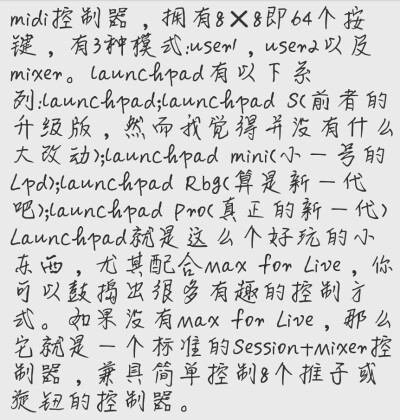 midi控制器，拥有8×8即64个按
键，有3种模式:user1，user2以及
mixer。launchpad有以下系
列:launchpad;launchpad S(前者的
升级版，然而我觉得并没有什么
大改动);launchpad mini(小一号的
Lpd);launchpad Rbg(算是新一代
吧);launchpad Pro(真正的新一代)
Launchpad就是这么个好玩的小
东西，尤其配合Max for Live，你
可以鼓捣出很多有趣的控制方
式。如果没有Max for Live，那么
它就是一个标准的Session+Mixer控
制器，兼具简单控制8个推子或
旋钮的控制器。